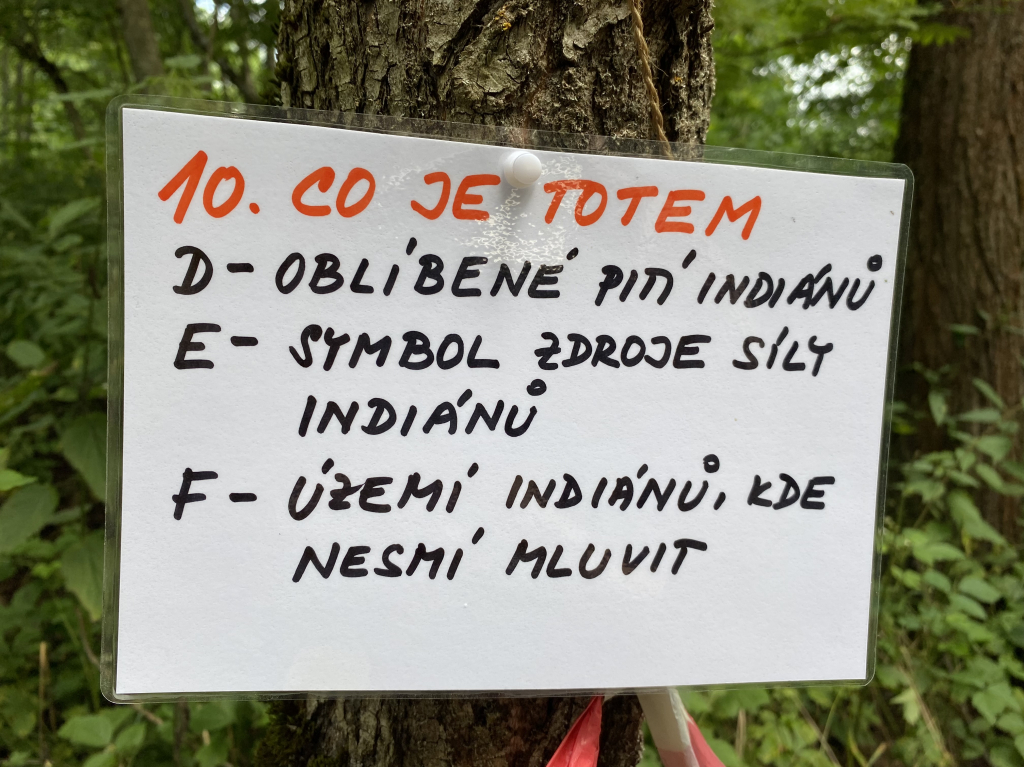 10. CO JE TOTEM
D - OBLÍBENÉ PITÍ INDIÁNŮ
E - SYMBOL ZDROJE SÍLY
INDIÁNŮ
F - ÚZEMÍ INDIÁNŮ, KDE
NESMÍ MLUVIT